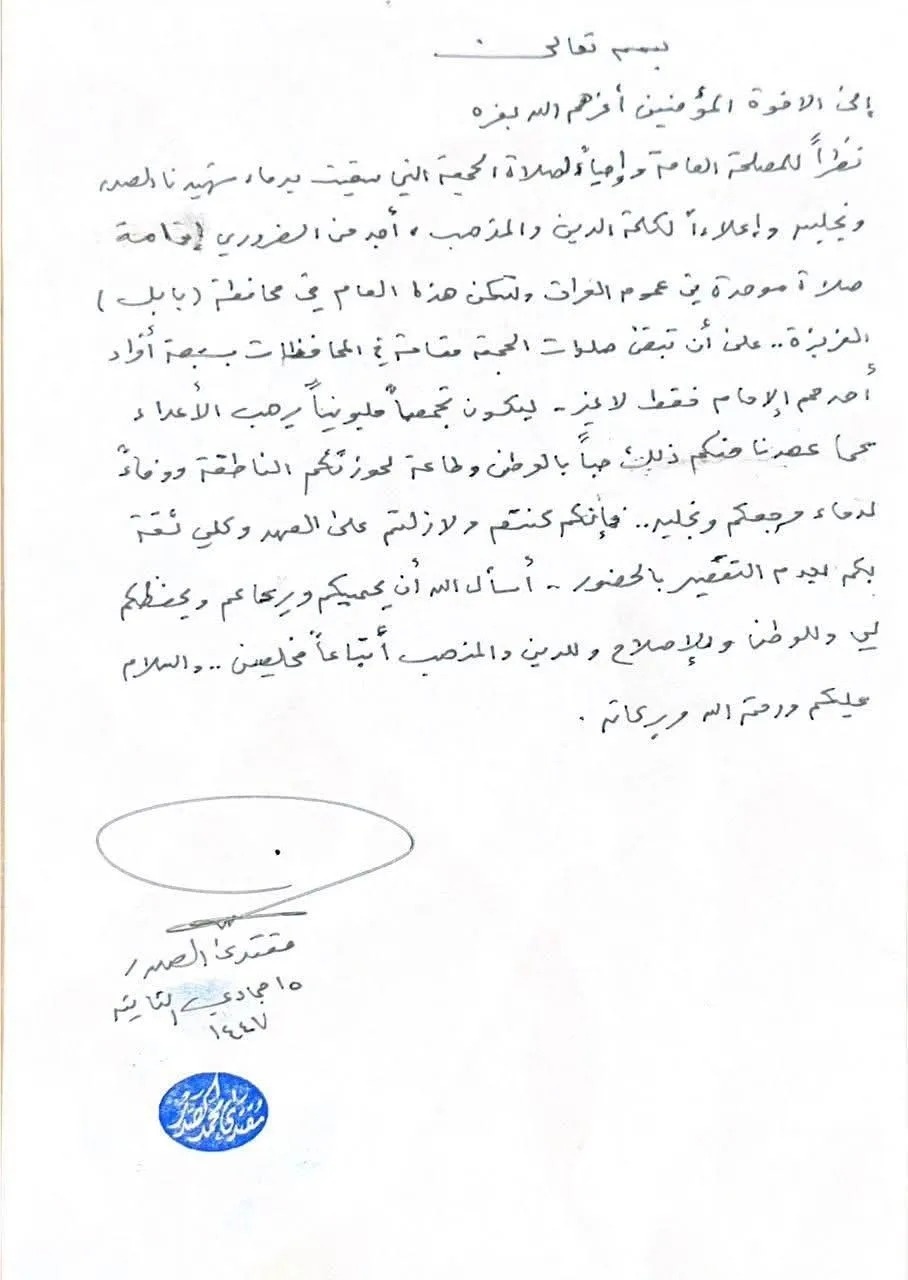 بسمه تعالى
إلى الاخوة المؤمنين أعزهم الله بعزه
نظراً للمصلحة العامة وإحياءً لصلاة الجمعة التي سقيت بدماء شهيدنا الصدر
ونجليه وإعلاءاً لكلمة الدين والمذهب، أجد من الضروري إقامة
صلاة موحدة في عموم الفرات ولتكن هذا العام في محافظة (بابل)
العزيزة.. على أن تبقى صلوات الجمعة مقامة في المحافظات بسبعة أفراد
أحدهم الإمام فقط لا غير.. ليكون تجمعاً مليونياً يرهب الأعداء
كما عهدنا منكم ذلك حباً بالوطن وطاعة لحوزتكم الناطقة ووفاءً
لدماء مرجعكم ونجليه.. فإنكم كنتم ولازلتم على العهد وكلي ثقة
بكم بعدم التقصير بالحضور.. أسأل الله أن يحميكم ويرعاكم ويحفظكم
لي وللوطن وللإصلاح وللدين والمذهب أتباعاً مخلصين.. والسلام
عليكم ورحمة الله وبركاته.
مقتدى الصدر
١٥ جمادي الثانية
١٤٤٧
مقتدى محمد الصدر